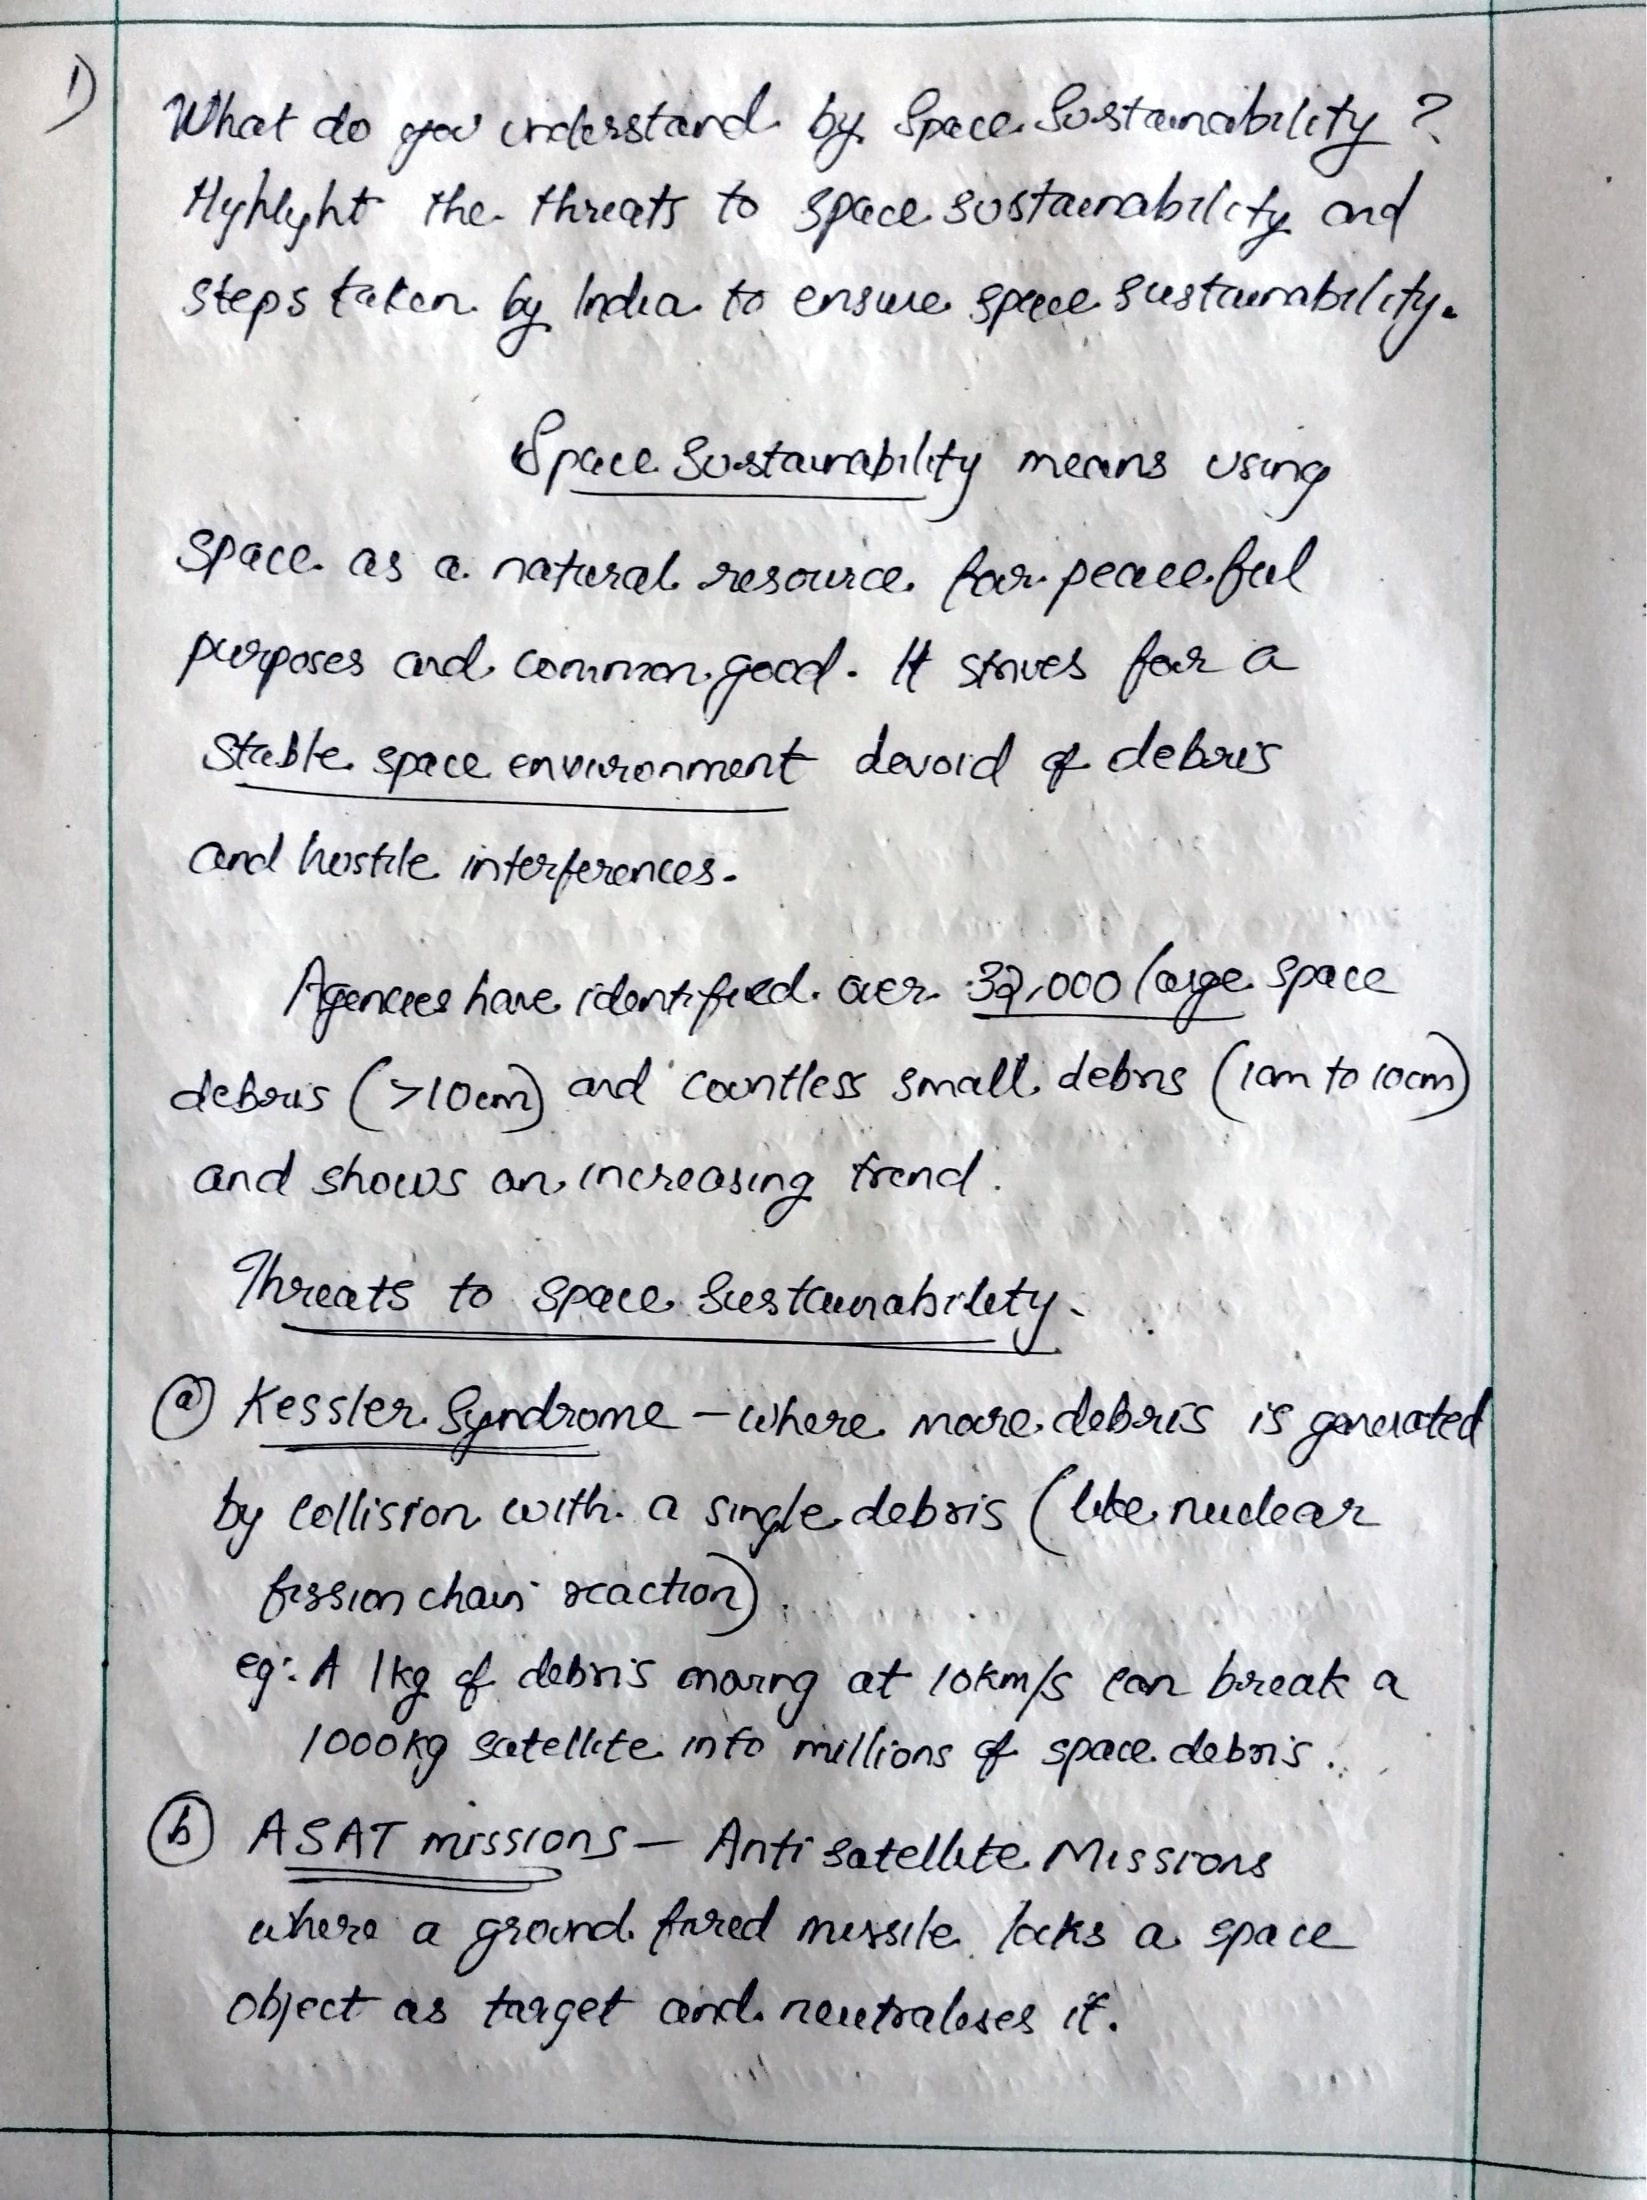 1)
What do you understand by Space Sustainability?
Highlight the threats to space sustainability and
steps taken by India to ensure space sustainability.
Space Sustainability means using
space as a natural resource for peaceful
purposes and common good. It strives for a
stable space environment devoid of debris
and hostile interferences.
Agencies have identified over 32,000 large space
debris (>10cm) and countless small debris (1cm to 10cm)
and shows an increasing trend.
Threats to Space Sustainability.
(a) Kessler Syndrome - where more debris is generated
by collision with a single debris (like nuclear
fission chain reaction).
eg: A 1kg of debris moving at 10km/s can break a
1000kg satellite into millions of space debris.
(b) ASAT missions - Anti Satellite Missions
where a ground fired missile locks a space
object as target and neutralises it.